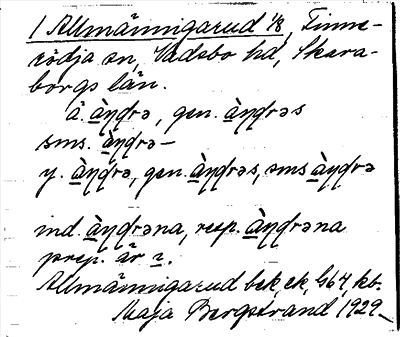 1 Allmänningarud 1/8, Finne-
rödja sn, Vadsbo hd, Skara-
borgs län.
ä. àŋdrə, gen. àŋdrəs
sms. àŋdrə-
y. àŋdrə, gen. àŋdrəs, sms àŋdrə
ind. àŋdrəna, resp. àŋdrəna
prep. är
Allmänningarud bek ek, G64, kb.
Maja Bergstrand 1929